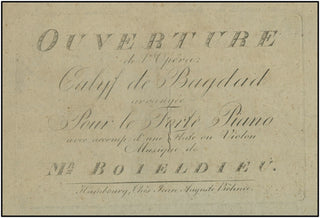 OUVERTURE
de l'Opéra:
Calyf de Bagdad
arrangée
Pour le Forte Piano
avec accomp. d'une Flute ou Violon
Musique de
Mr. BOIELDIEU.
Hambourg, Chés Jean Auguste Böhme.